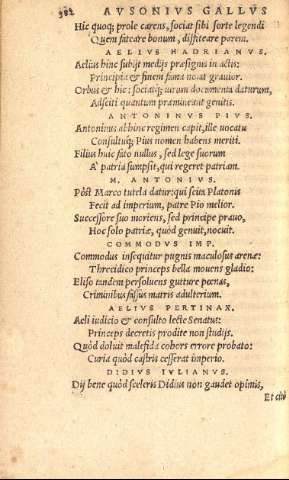 382 AVSONIVS GALLVS
Hic quoq; prole carens, sociat sibi sorte legendi
Quem fateare bonum, diffiteare parem.
AELIVS HADRIANVS.
Aelius hinc subijt medijs præsignis in actis:
Principia & finem fama notat grauior.
Orbus & hic: sociatq; uirum documenta daturum,
Adsciti quantum præmineant genitis.
ANTONINVS PIVS.
Antoninus abhinc regimen capit, ille uocatu
Consultuq; Pius nomen habens meriti.
Filius huic fato nullus, sed lege suorum
A' patria sumpsit, qui regeret patriam.
M. ANTONIVS.
Pòst Marco tutela datur: qui scita Platonis
Fecit ad imperium, patre Pio melior.
Successore suo moriens, sed principe prauo,
Hoc solo patriæ, quòd genuit, nocuit.
COMMODVS IMP.
Commodus insequitur pugnis maculosus arenæ:
Threcidico princeps bella mouens gladio:
Eliso tandem persoluens gutture pœnas,
Criminibus fassus matris adulterium.
AELIVS PERTINAX.
Aeli iudicio & consulto lecte Senatus:
Princeps decretis prodite non studijs.
Quòd doluit malefida cohors errore probato:
Curia quòd castris cesserat imperio.
DIDIVS IVLIANVS.
Dij bene quòd sceleris Didius non gaudet opimis,
Et